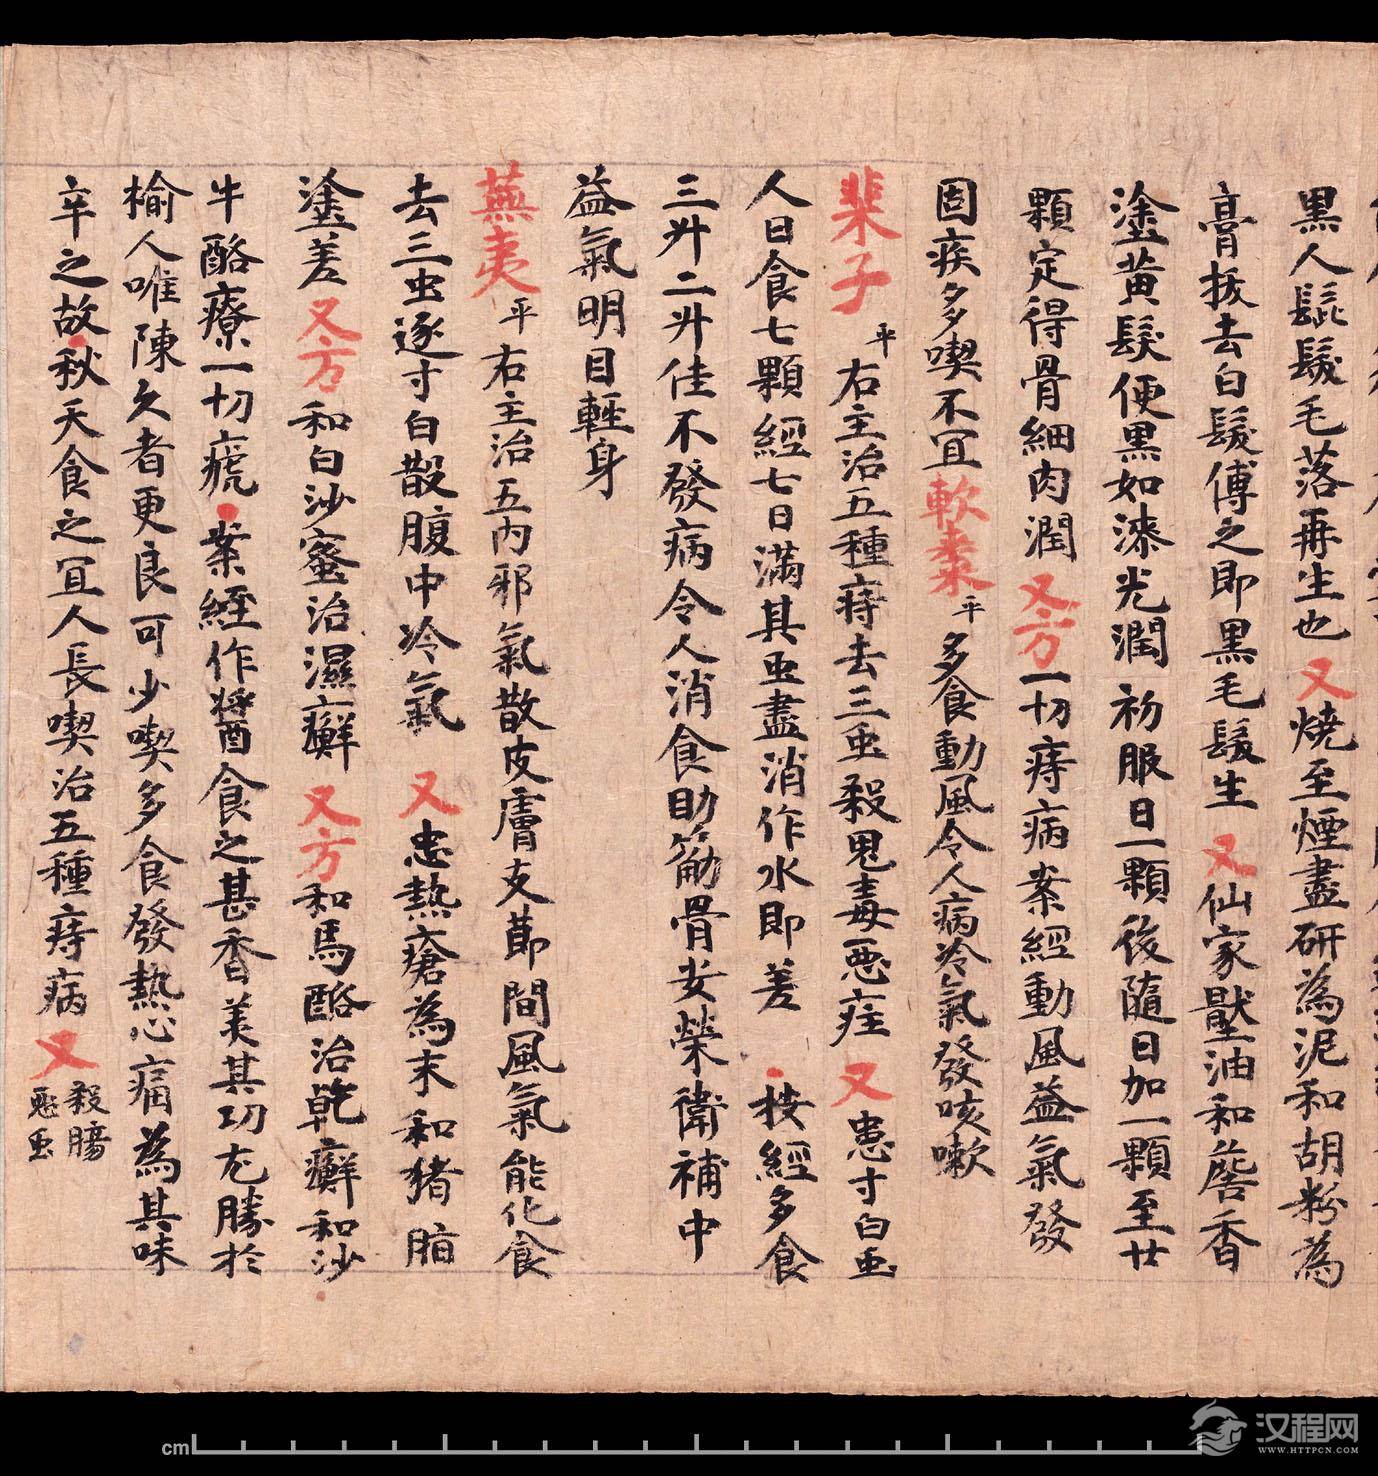 黑人髭髮毛落再生也又燒至煙盡研為泥和胡粉為
膏拔去白髮傅之即黑毛髮生又仙家壓油和麐香
塗黃髮便黑如漆光潤初服日一顆後隨日加一顆至廿
顆定得骨細肉潤又方一切痔病案經動風益氣發
固疾多喫不宜軟棗平多食動風令人病冷氣發咳嗽
棐子平右主治五種痔去三虫殺鬼毒惡疰又患寸白虫
人日食七顆經七日滿其虫盡消作水即差按經多食
三升二升佳不發病令人消食助筋骨安榮衛補中
益氣明目輕身
蕪夷平右主治五內邪氣散皮膚支莭間風氣能化食
去三虫逐寸白散腹中冷氣又患熱瘡為末和猪脂
塗差又方和白沙蜜治濕癬又方和馬酪治乾癬和沙
牛酪療一切瘡案經作醬食之甚香美其功尤勝於
榆人唯陳久者更良可少喫多食發熱心痛為其味
辛之故秋天食之宜人長喫治五種痔病又殺腸惡虫
cm
汉程网
WWW.HTTPCN.COM